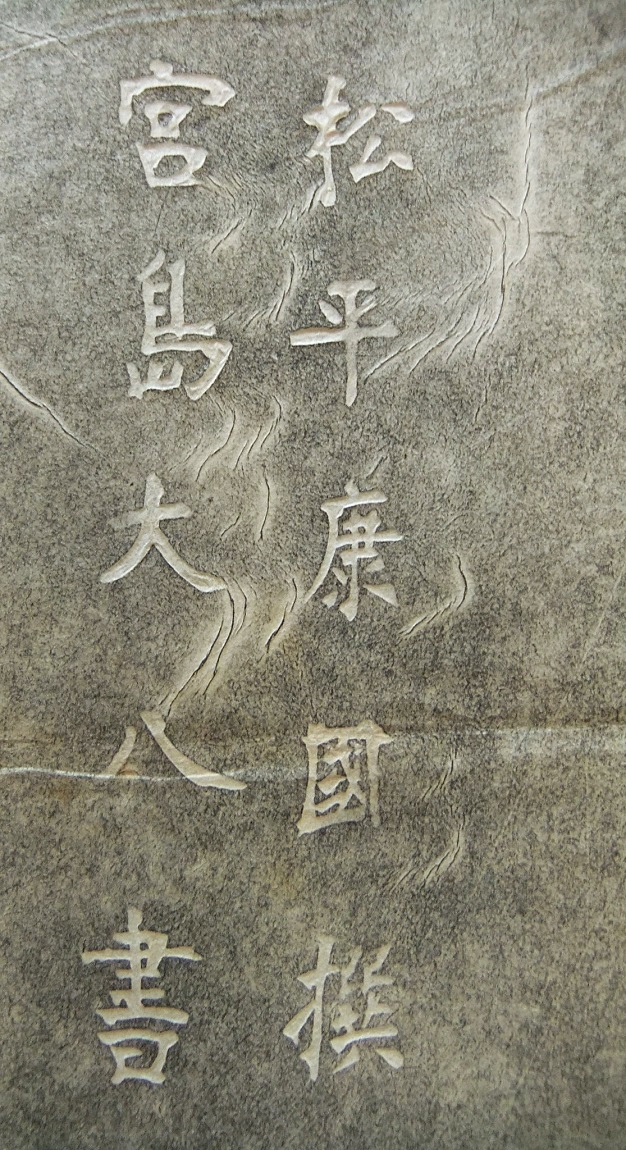 松平康國撰
宮島大八書